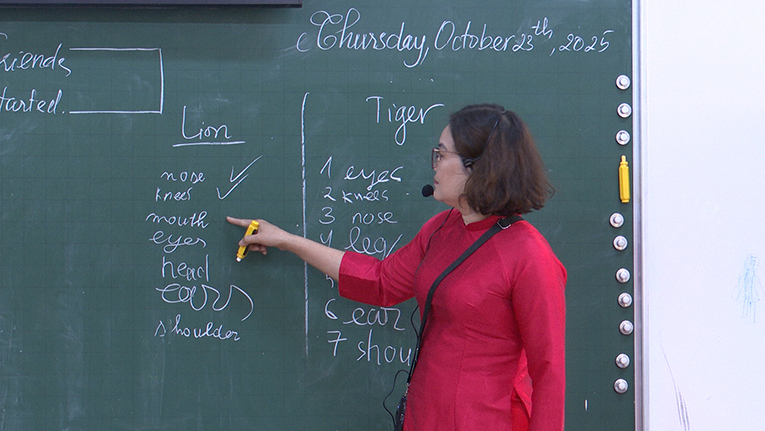 Thursday, October 23th, 2025
friends
tarted.
Lion
nose
knees
mouth
eyes
head
ears
shoulder
Tiger
1 eyes
2 knees
3 nose
4 leg
6 ear
7 shou